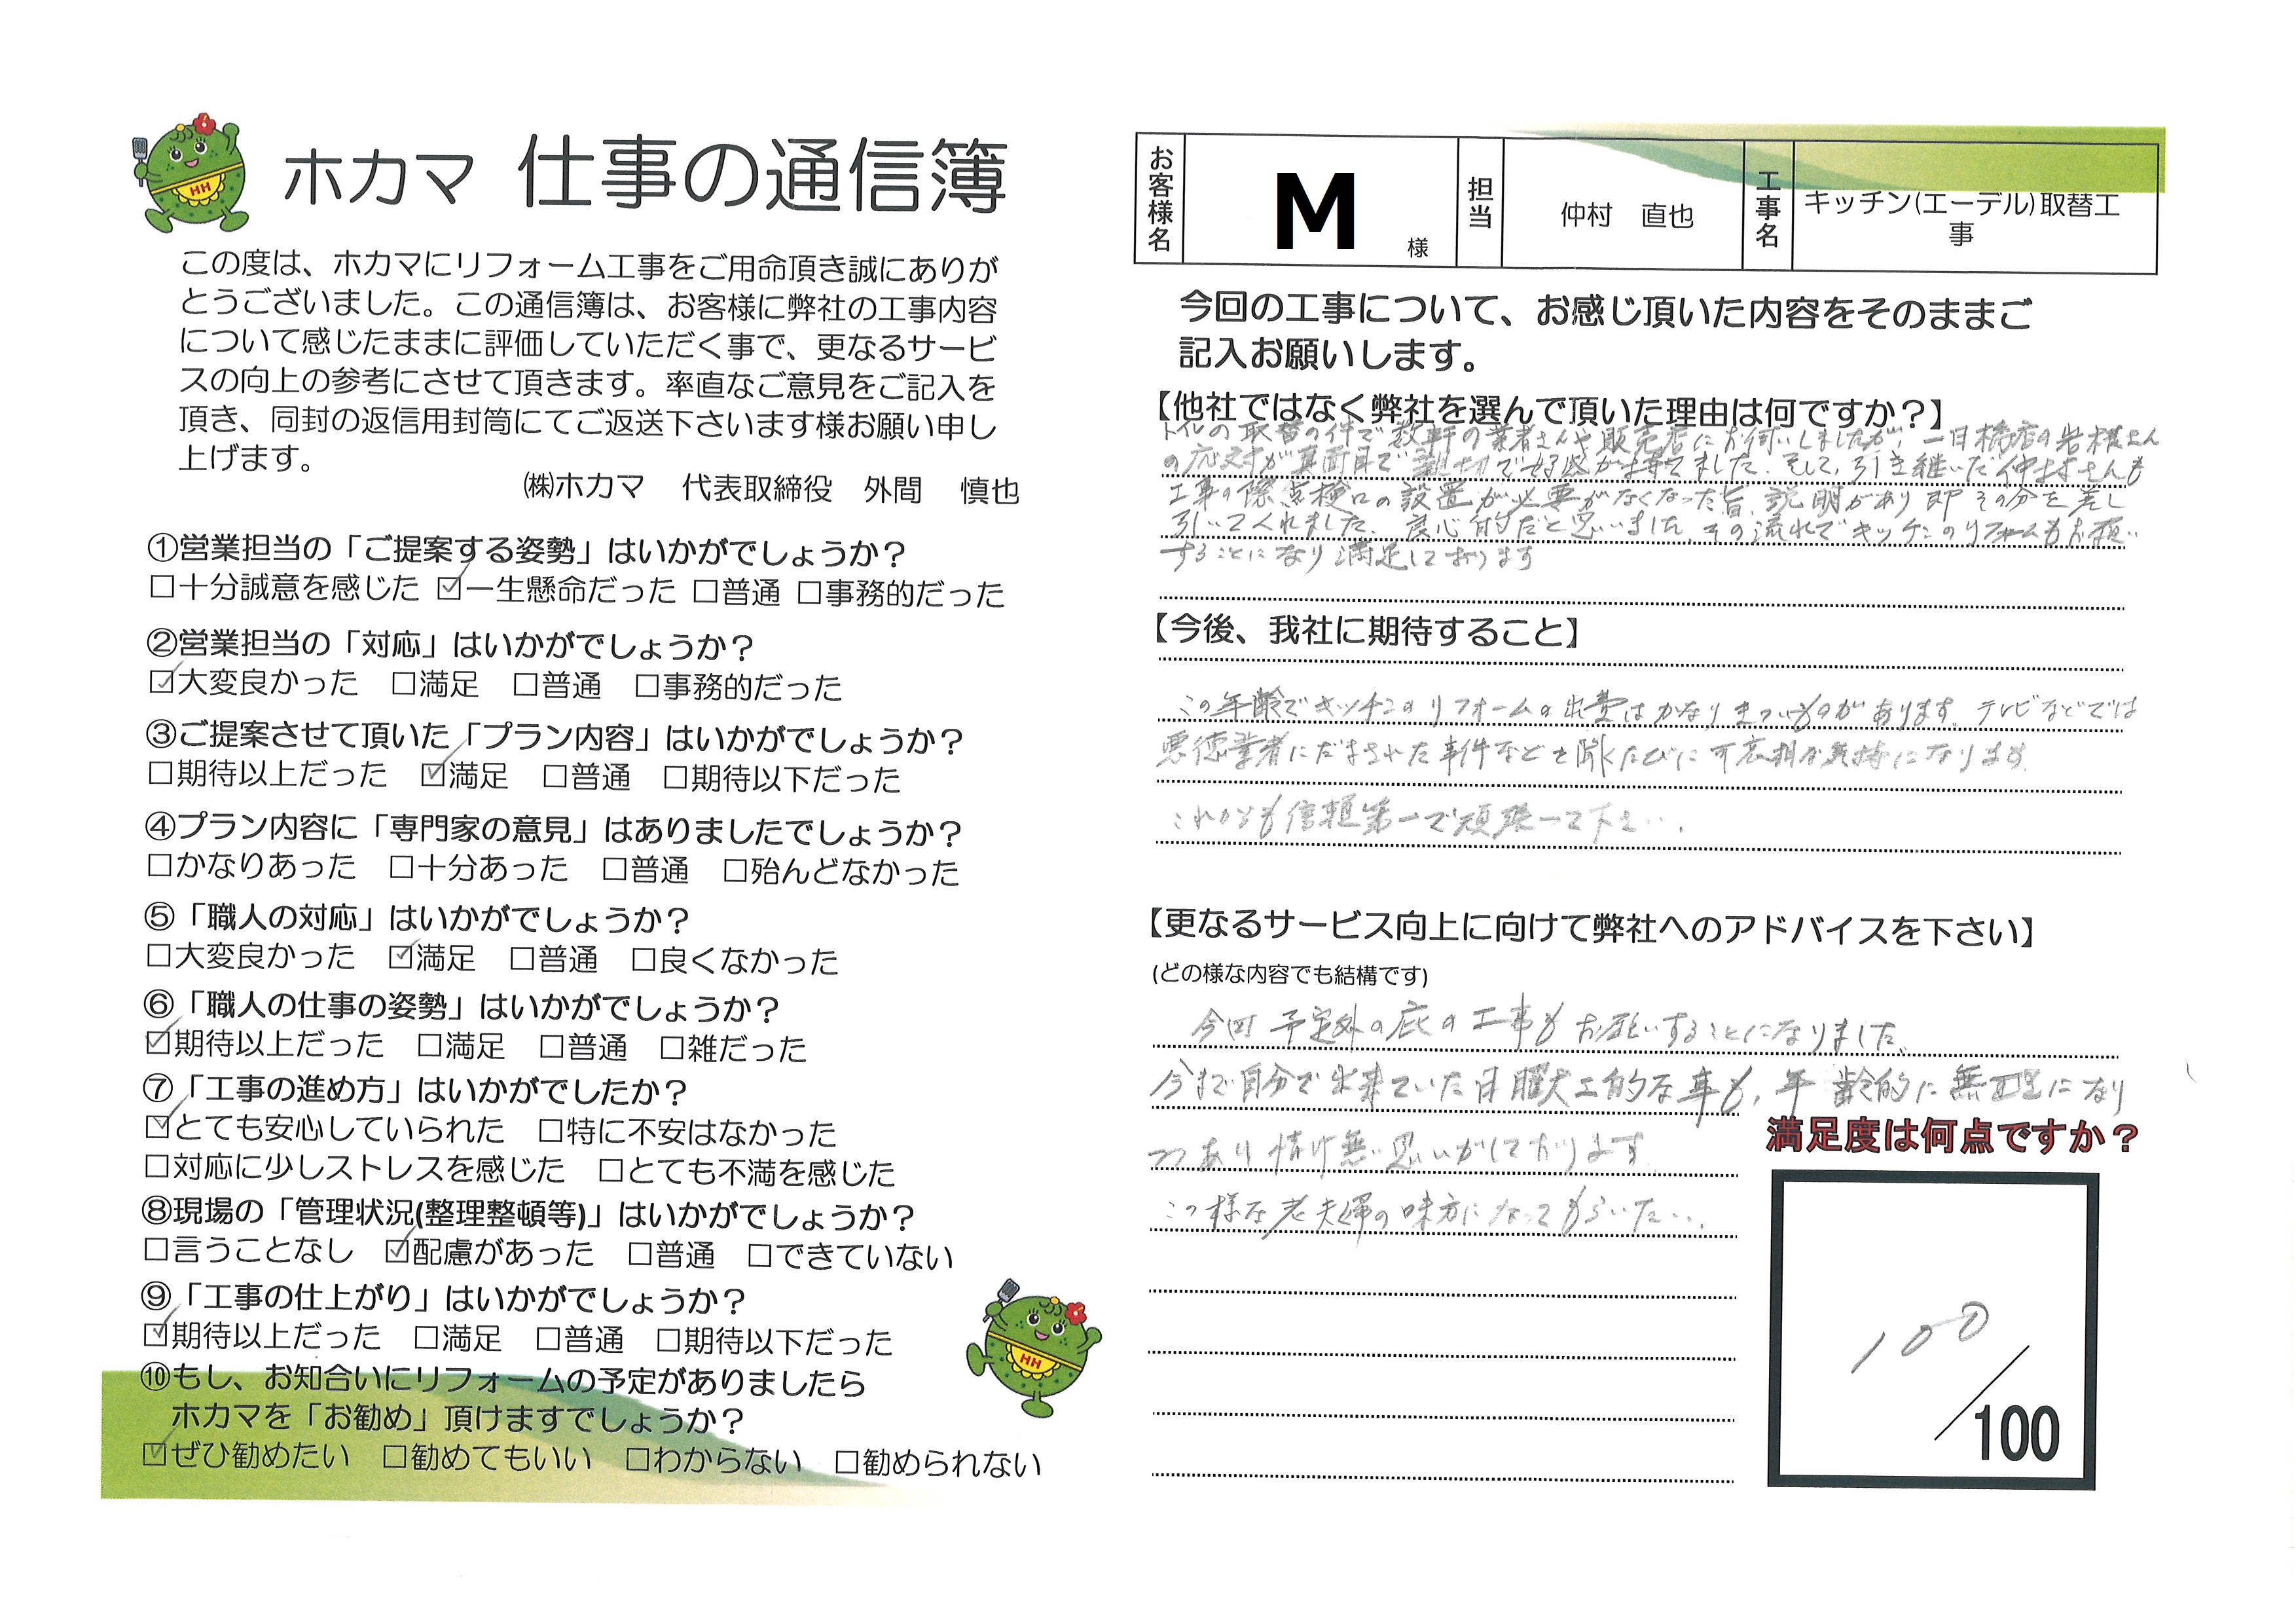 ホカマ 仕事の通信簿
この度は、ホカマにリフォーム工事をご用命頂き誠にありが
とうございました。この通信簿は、お客様に弊社の工事内容
について感じたままに評価していただく事で、更なるサービ
スの向上の参考にさせて頂きます。率直なご意見をご記入を
頂き、同封の返信用封筒にてご返送下さいます様お願い申し
上げます。
㈱ホカマ 代表取締役 外間 慎也
①営業担当の「ご提案する姿勢」はいかがでしょうか？
□十分誠意を感じた ☑一生懸命だった □普通 □事務的だった
②営業担当の「対応」はいかがでしょうか？
☑大変良かった □満足 □普通 □事務的だった
③ご提案させて頂いた「プラン内容」はいかがでしょうか？
□期待以上だった ☑満足 □普通 □期待以下だった
④プラン内容に「専門家の意見」はありましたでしょうか？
□かなりあった □十分あった □普通 □殆んどなかった
⑤「職人の対応」はいかがでしょうか？
□大変良かった ☑満足 □普通 □良くなかった
⑥「職人の仕事の姿勢」はいかがでしょうか？
☑期待以上だった □満足 □普通 □雑だった
⑦「工事の進め方」はいかがでしたか？
☑とても安心していられた □特に不安はなかった
□対応に少しストレスを感じた □とても不満を感じた
⑧現場の「管理状況(整理整頓等)」はいかがでしょうか？
□言うことなし ☑配慮があった □普通 □できていない
⑨「工事の仕上がり」はいかがでしょうか？
☑期待以上だった □満足 □普通 □期待以下だった
⑩もし、お知合いにリフォームの予定がありましたら
ホカマを「お勧め」頂けますでしょうか？
☑ぜひ勧めたい □勧めてもいい □わからない □勧められない
HH
HH
お客様名 M 様 担当 仲村 直也 工事名 キッチン(エーデル)取替工
事
今回の工事について、お感じ頂いた内容をそのままご
記入お願いします。
【他社ではなく弊社を選んで頂いた理由は何ですか？】
トイレの取替の件で数軒の業者さんや販売店にお伺いしましたが、一日橋店の岩様さん
の応対が真面目で親切で好感が持てました。そして、引き継いだ仲村さんも
工事の際点検口の設置が必要がなくなった旨、説明があり即その分を差し
引いてくれました。良心的だと思いました。その流れでキッチンのリフォームもお願い
することになり満足しております
【今後、我社に期待すること】
この年齢でキッチンのリフォームの出費はかなりきついものがあります。テレビなどでは
悪徳業者にだまされた事件などを聞くたびに不愉快な気持になります。
これからも信頼第一で頑張って下さい。
【更なるサービス向上に向けて弊社へのアドバイスを下さい】
(どの様な内容でも結構です)
今回予定外の庇の工事もお願いすることになりました。
今まで自分で出来ていた日曜大工的な事も、年齢的に無理になり
つつあり情け無い思いがしております。
この様な老夫婦の味方になってもらいたい。
満足度は何点ですか？
100
/100